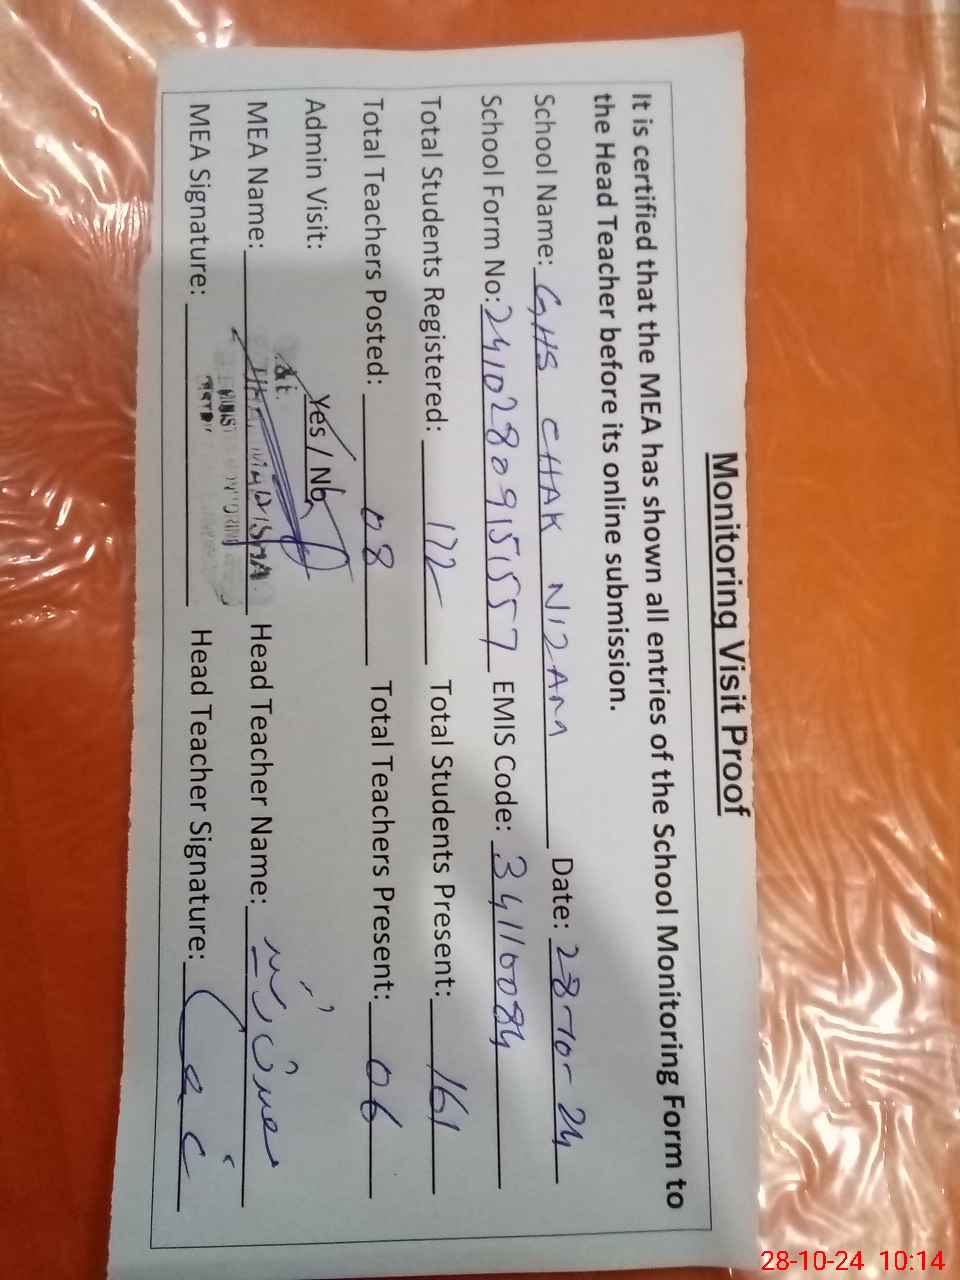 Monitoring Visit Proof
It is certified that the MEA has shown all entries of the School Monitoring Form to
the Head Teacher before its online submission.
School Name: GHS CHAK NIZAM Date: 28-10-24
School Form No: 2410280915157 EMIS Code: 34110084
Total Students Registered: 172 Total Students Present: 161
Total Teachers Posted: 08 Total Teachers Present: 06
Admin Visit: Yes / No
MEA Name: Head Teacher Name:
MEA Signature: Head Teacher Signature:
28-10-24 10:14